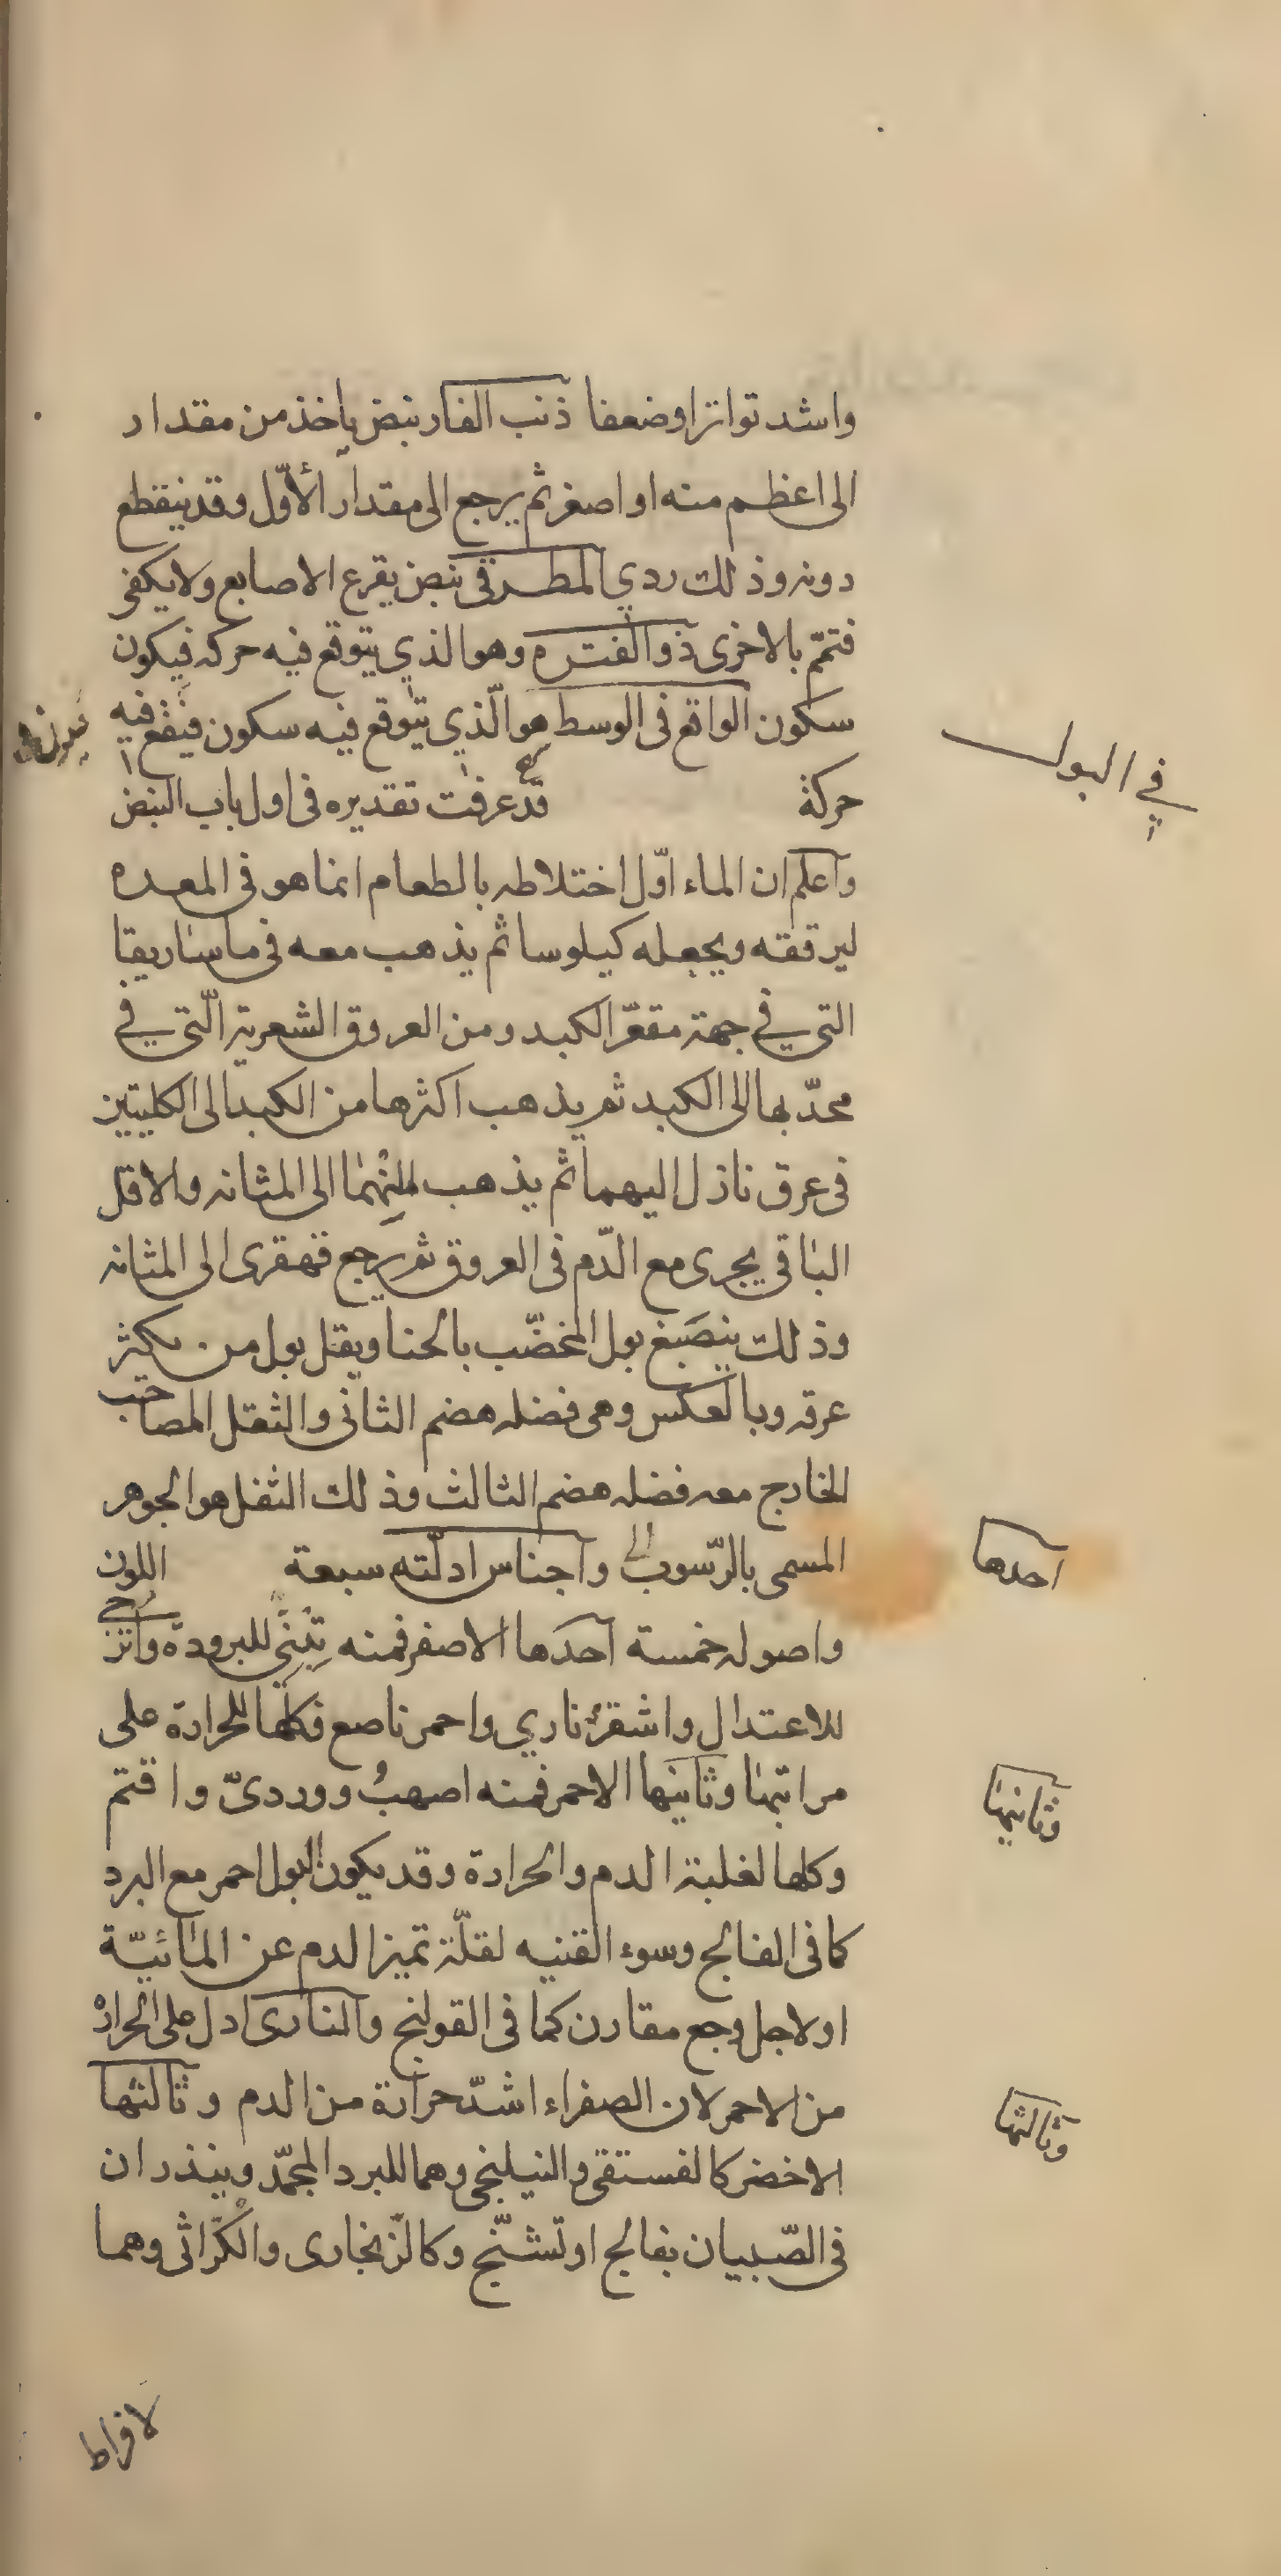 واشد تواترا وضعفا ذنب الفار نبض ياخذ من مقدار
الى اعظم منه او اصغر ثم يرجع الى مقدار الأوّل وقد ينقطع
دونه وذلك ردي المطرقى نبض يقرع الاصابع ولا يكفى
فتمّم بالاخرى ذو الفتره وهو الذي يتوقع فيه حركه فيكون
سكون الواقع فى الوسط هو الّذي يتوقع فيه سكون فيقع فيه
حركة قد عرفت تقديره فى اول باب النبض
في البول
واعلم ان الماء اوّل اختلاطه بالطعام انما هو فى المعده
ليرققه ويجعله كيلوسا ثم يذهب معه فى ماساريقا
التى في جهة مقعّر الكبد ومن العروق الشعرية الّتى في
محدّبها الى الكبد ثم يذهب اكثرها من الكبد الى الكليتين
فى عرق نازل اليهما ثم يذهب منهما الى المثانه والاقل
الباقى يجرى مع الدّم فى العروق ثم يرجع قهقرى الى المثانه
وذلك ينصَبغ بول المخضّب بالحنا ويقل بول من يكثر
عرقه وبالعكس وهى فضله هضم الثانى والثفل المصاحب
الخارج معه فضله هضم الثالث وذلك الثفل هو الجوهر
المسمى بالرّسوب واجناس ادلّته سبعة اللون
احدها
واصوله خمسة احدها الاصفر فمنه تبنىّ للبرودة واترجي
للاعتدال واشقر ناري واحمر ناصع فكلها للحرارة على
مراتبها وثانيها الاحمر فمنه اصهب ووردىّ واقتم
وثانيها
وكلها لغلبة الدم والحرارة وقد يكون البول احمر مع البرد
كما فى الفالج وسوء القنيه لقلّة تميز الدم عن المائيّة
او لاجل وجع مقارن كما فى القولنج والنارى ادل على الحرارة
من الاحمر لان الصفراء اشدّ حرارة من الدم وثالثها
وثالثها
الاخضر كالفستقى والنيلنجى وهما للبرد المجمّد وينذران
فى الصّبيان بفالج او تشنّج وكالزّنجارى والكُرّاثى وهما
لافراط